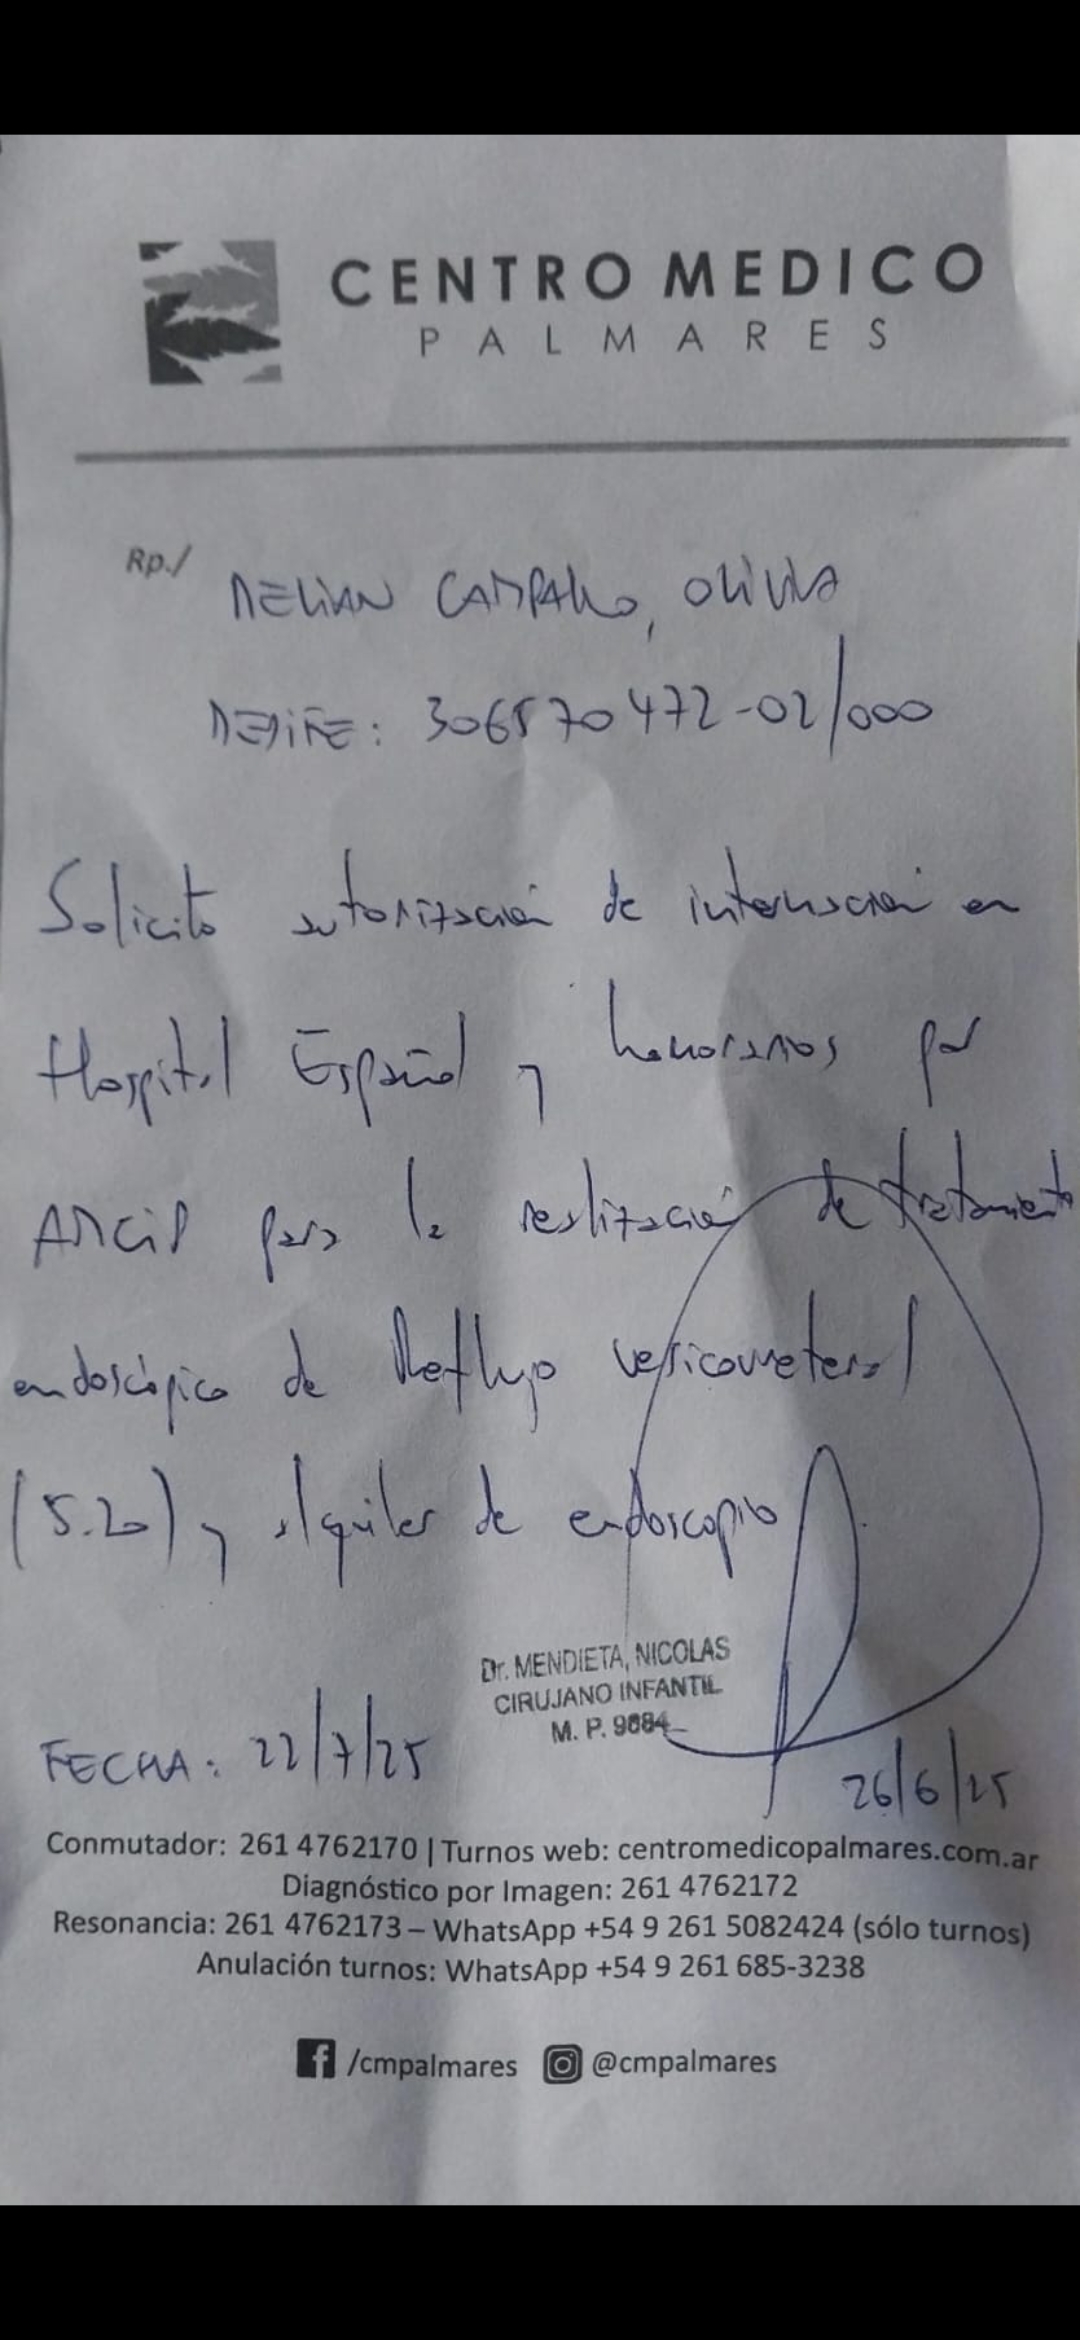 CENTRO MEDICO
PALMARES
Rp./
MELIAN CAMPALLO, OLIVIA
MEDIFE: 306570472-02/000
Solicito autorización de internación en
Hospital Español y honorarios por
AMCIP para la realización de tratamiento
endoscópico de Reflujo vesicoureteral
(5.20) y alquiler de endoscopio
Dr. MENDIETA, NICOLAS
CIRUJANO INFANTIL
M. P. 9884
FECHA: 22/7/25
26/6/25
Conmutador: 261 4762170 | Turnos web: centromedicopalmares.com.ar
Diagnóstico por Imagen: 261 4762172
Resonancia: 261 4762173 – WhatsApp +54 9 261 5082424 (sólo turnos)
Anulación turnos: WhatsApp +54 9 261 685-3238
/cmpalmares @cmpalmares